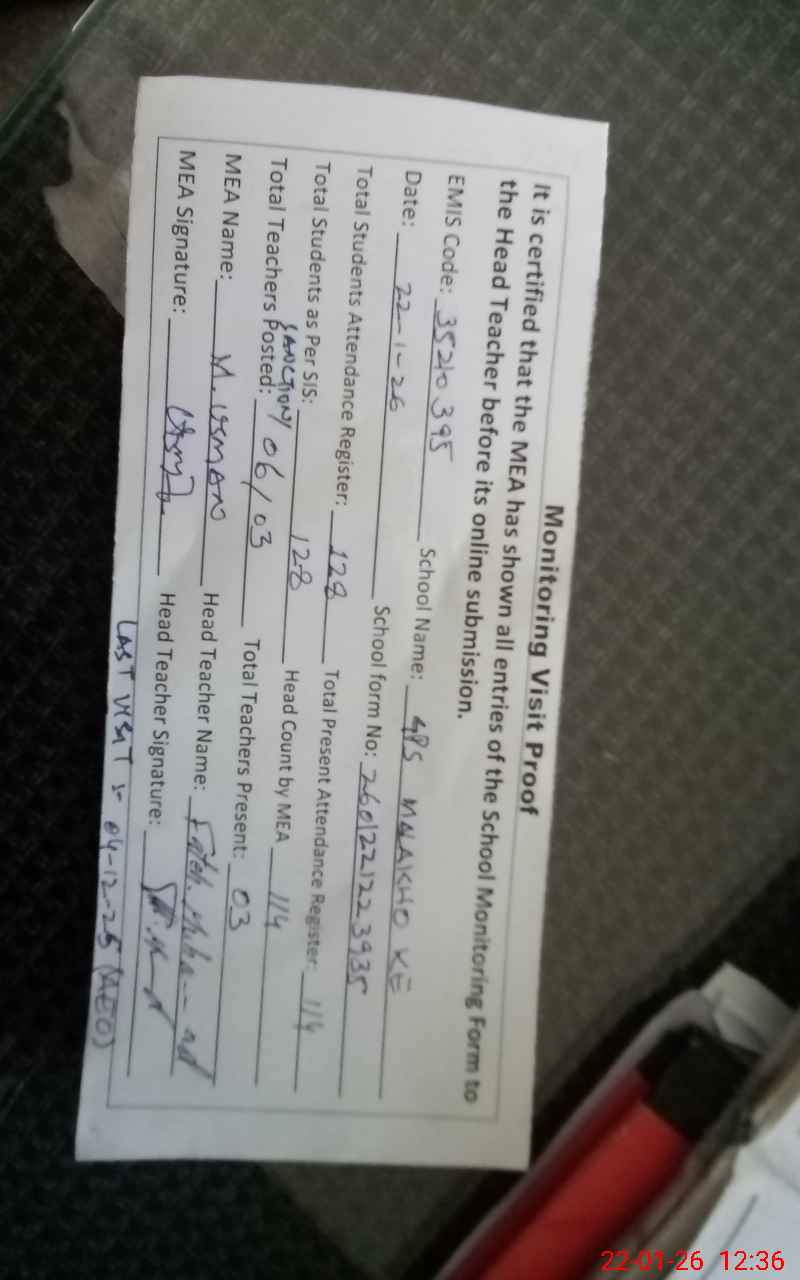 Monitoring Visit Proof
It is certified that the MEA has shown all entries of the School Monitoring Form to
the Head Teacher before its online submission.
EMIS Code: 35210395 School Name: GPS MALAKHO KE
Date: 22-1-26 School form No: 260122122 3935
Total Students Attendance Register: 128 Total Present Attendance Register: 114
Total Students as Per SIS: 128 Head Count by MEA 114
SANCTION/
Total Teachers Posted: 06/03 Total Teachers Present: 03
MEA Name: M. USMAN Head Teacher Name:
MEA Signature: Head Teacher Signature:
LAST VISIT :- 04-12-25 (AEO)
22-01-26 12:36